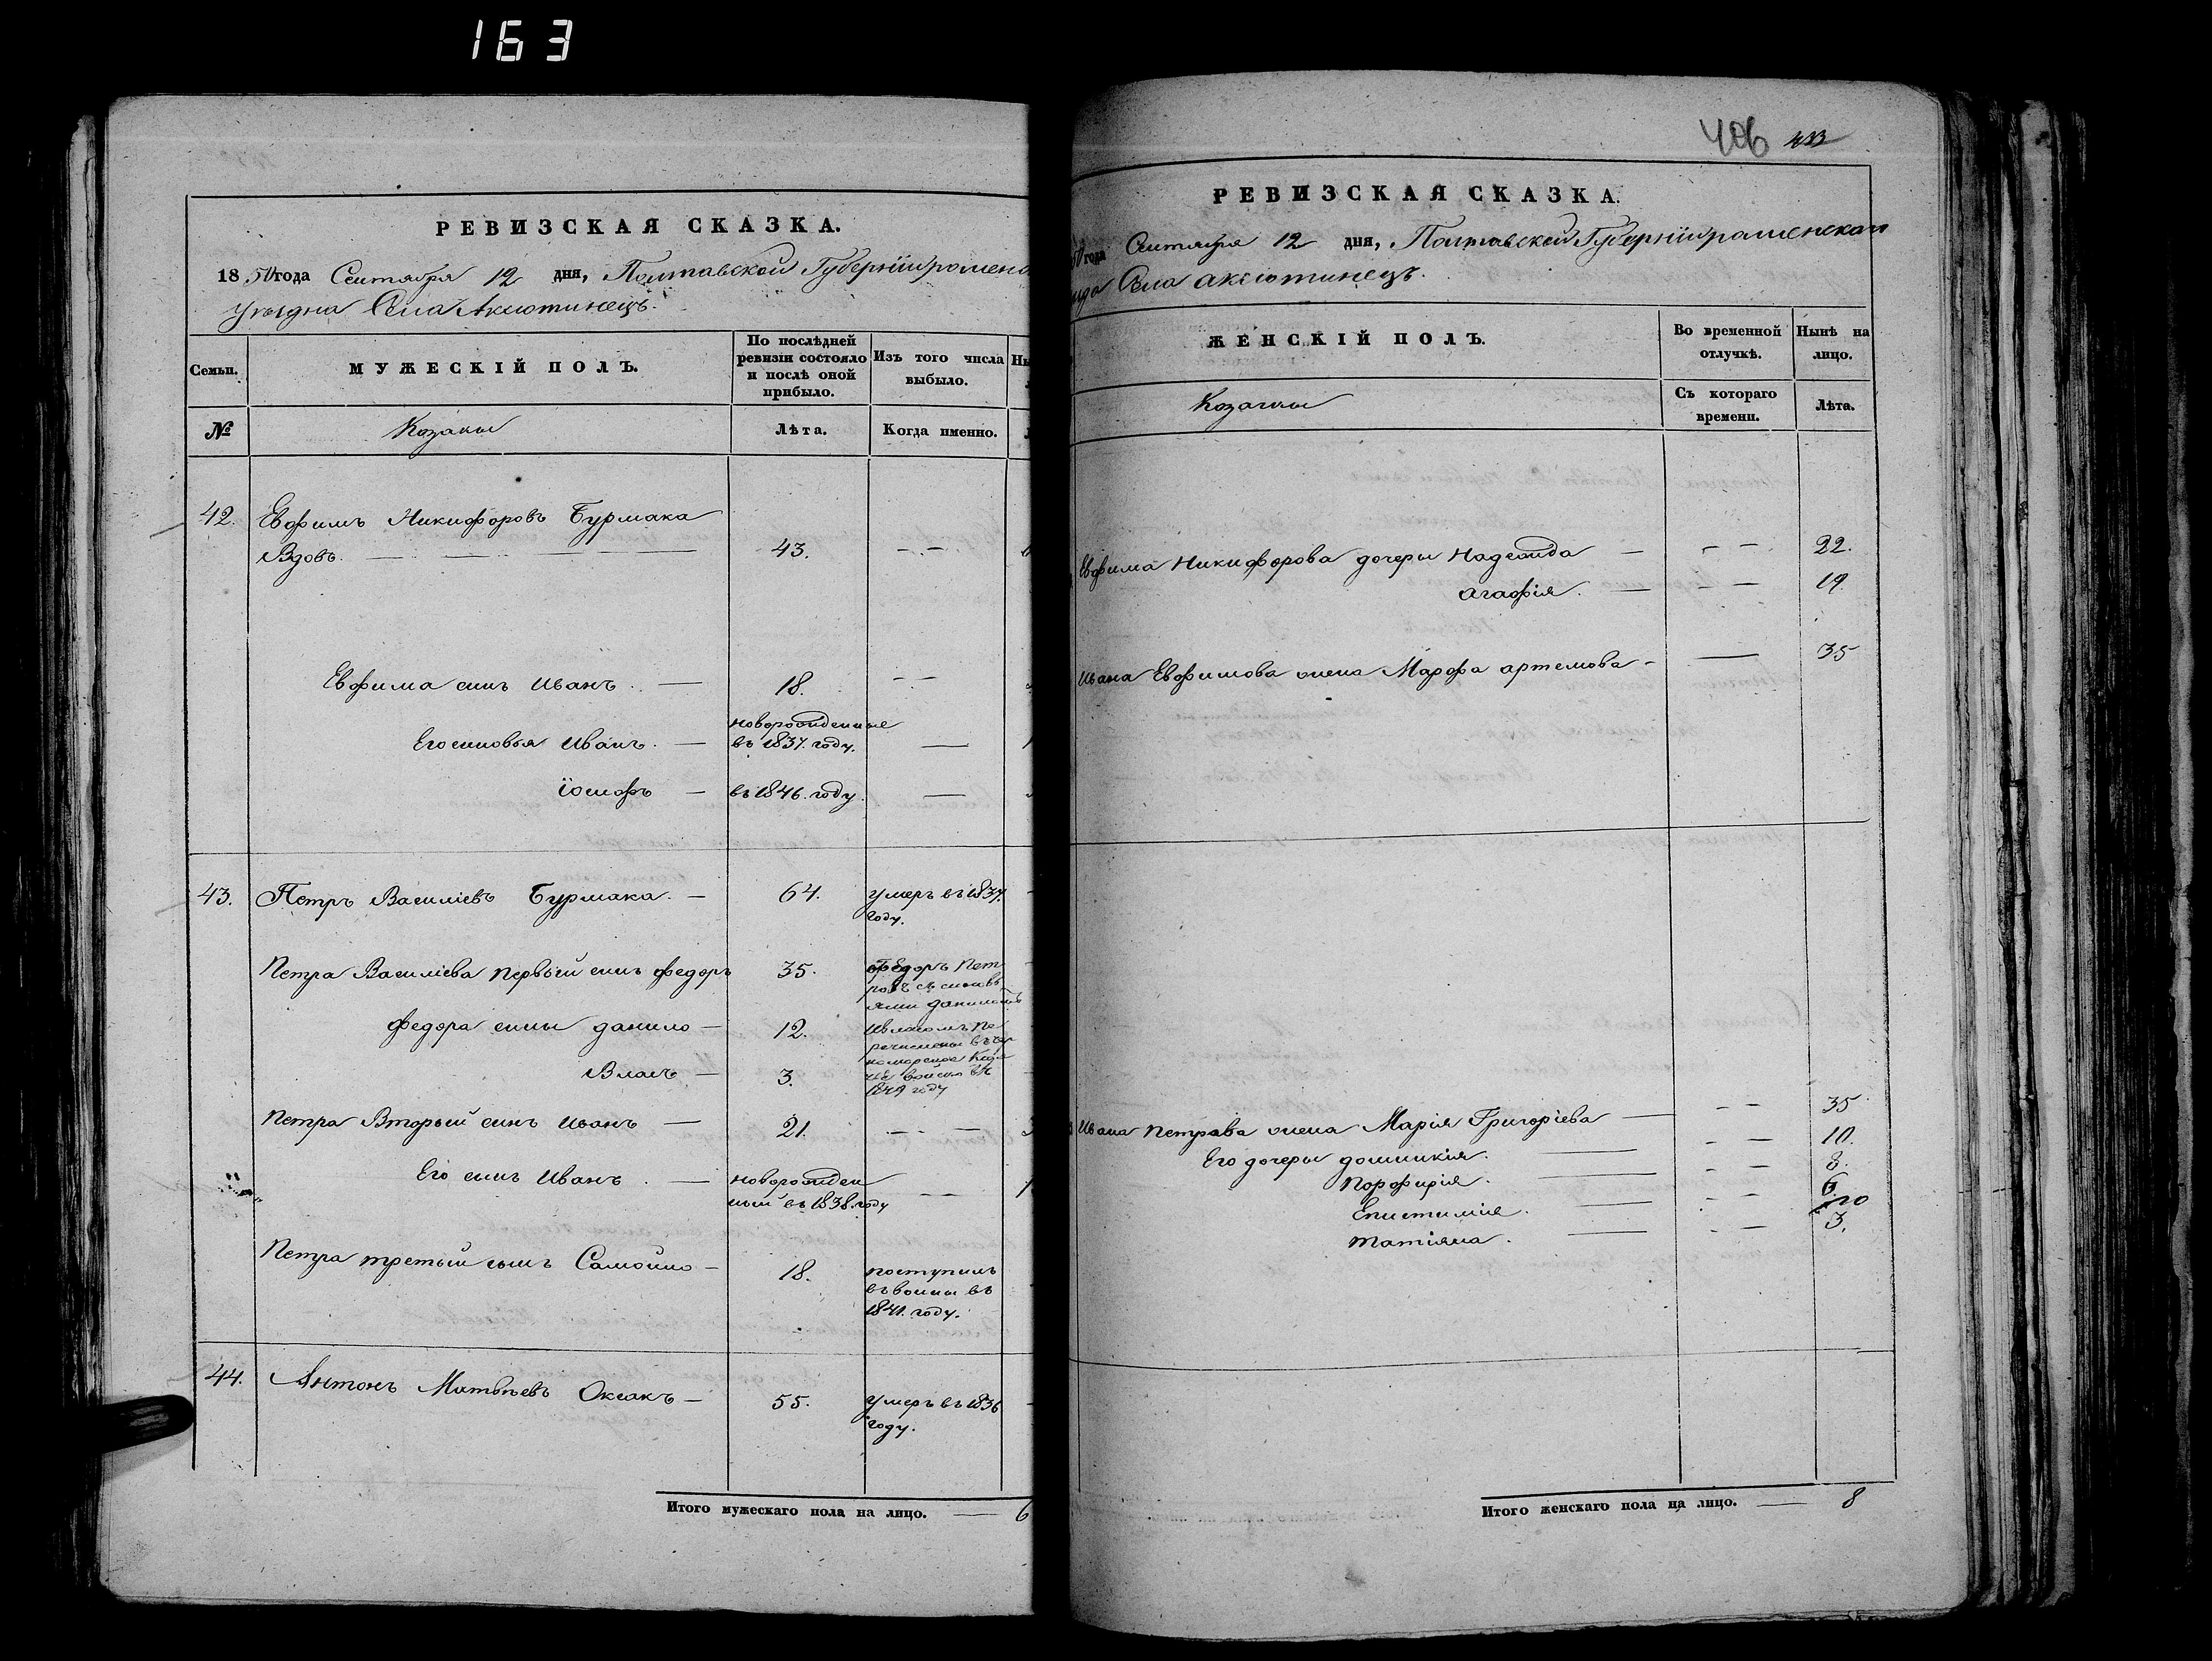 163
РЕВИЗСКАЯ СКАЗКА.
1850 года Сентября 12 дня, Полтавской Губерніи роменс
уѣзда Села Аксютинецъ.
Семьи.
МУЖЕСКІЙ ПОЛЪ.
По послѣдней ревизіи состояло и послѣ оной прибыло.
Изъ того числа выбыло.
№
Козаки
Лѣта.
Когда именно.
42. Евфимъ Никифоровъ Бурмака
Вдовъ. — 43. — —
Евфима синъ Иванъ. — 18. — —
новорожденные
Его синовья Иванъ. — въ 1837. году. —
Іосифъ — въ 1846. году. —
43. Петръ Василіевъ Бурмака. — 64. умеръ въ 1837.
году.
Петра Василіева первый синъ Федоръ 35. Федоръ Пет
ровъ съ синовь
ями Даниломъ
Федора сины данило — 12. Ивласомъ Пе
речислены въ Чер
номорское Каза
Власъ — 3. чіе войско въ
1849 году
Петра Вторый синъ Иванъ — 21. — —
Его синъ Иванъ. — новорожден
ный въ 1838. году — —
Петра третый синъ Самойло — 18. поступилъ
въ воины въ
1841. году.
44. Антонъ Матвѣевъ Оксакъ — 55. умеръ въ 1836
году.
Итого мужескаго пола на лицо. — 6
406 433
РЕВИЗСКАЯ СКАЗКА.
50 года Сентября 12 дня, Полтавской Губерніи роменскаго
зда Села аксютинецъ.
ЖЕНСКІЙ ПОЛЪ.
Во временной отлучкѣ.
Нынѣ на лицо.
Козачки
Съ котораго времени.
Лѣта.
Евфима Никифорова дочери Надежда — — — 22.
агафія. — — — 19.
Ивана Евфимова жена Марфа артемова — — 35
Ивана Петрова жена Марія Григоріева — — — 35
Его дочери домникія. — — — 10.
Порфирія. — — — 8.
Епистимія. — — — 6.
татіяна. — — — 3.
Итого женскаго пола на лицо. — 8